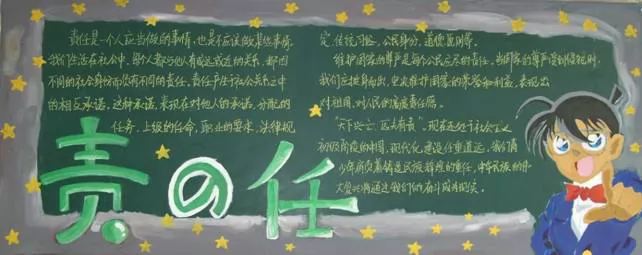 责任是一个人应当做的事情，也是不应该做某些事情
我们生活在社会中，
不同的社会身份而没有不同的责任。责任产生于社会关系之中
的相互承诺，这种承诺，来现在对他人的承诺，分配的
任务，上级的任命，职业的要求，法律规
定，传统习俗，公民身份，道德原则等。
维护国家的尊严是每个公民应尽的责任。当国家的尊严受到侵犯时，
我们应挺身而出，坚决维护国家的荣誉和利益，表现出
对祖国，对人民的高度责任感。
现在还处于社会主义
初级阶段的中国，现代化建设任重道远，我们青
少年肩负着铸造民族辉煌的重任，中华民族的伟
大复兴将通过我们的奋斗成为现实。
责の任